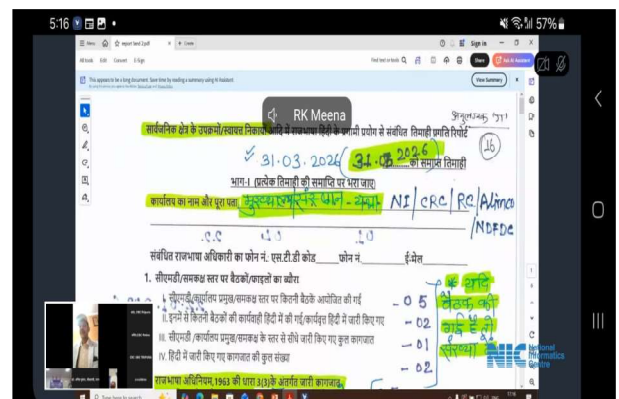 5:16
57%
Menu
report land 2.pdf
+ Create
Sign in
All tools Edit Convert E-Sign
Find text or tools
Share
Ask AI Assistant
This appears to be a long document. Save time by reading a summary using AI Assistant
View Summary
RK Meena
सार्वजनिक क्षेत्र के उपक्रमों/स्वायत्त निकायों आदि में राजभाषा हिंदी के प्रगामी प्रयोग से संबंधित तिमाही प्रगति रिपोर्ट
16
31.03.2026 (31.03.2026 को समाप्त तिमाही
भाग-I (प्रत्येक तिमाही की समाप्ति पर भरा जाए)
कार्यालय का नाम और पूरा पता NI/CRC/RC/Alimco
/NDFDC
संबंधित राजभाषा अधिकारी का फोन नं.: एस.टी.डी कोड फोन नं. ई-मेल
1. सीएमडी/समकक्ष स्तर पर बैठकों/फाइलों का ब्यौरा
* यदि
I. सीएमडी/कार्यालय प्रमुख/समकक्ष स्तर पर कितनी बैठकें आयोजित की गई - 05 बैठक की
II. इनमें से कितनी बैठकों की कार्यवाही हिंदी में की गई/कार्यवृत्त हिंदी में जारी किए गए - 02 गई है तो
III. सीएमडी /कार्यालय प्रमुख/समकक्ष के स्तर से सीधे जारी किए गए कुल कागजात - 01 संख्या दें
IV. हिंदी में जारी किए गए कागजात की कुल संख्या - 02
NIC National Informatics Centre
राजभाषा अधिनियम, 1963 की धारा 3(3)के अंतर्गत जारी कागजात
Type here to search
17:16